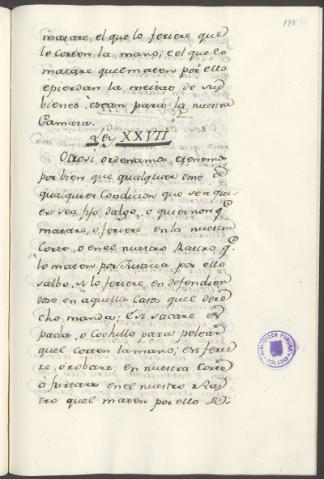 110
matare, el que lo feriere que
le corten la mano; e el que lo
matare quel maten por ello
e pierdan la meitad de sus
bienes e sean para la nuestra
Camara.
Ley XXVII
Otrosi ordenamos e tenemos
por bien que qualquier ome de
qualquier Condicion que sea qui
er sea fijo dalgo, o quier non q.e
matare, o feriere en la nuestra
Corte, o en el nuestro Rastro q.e
lo maten por Justicia por ello
salbo si lo feriere, en defendien
dose en aquellos Casos quel dere
cho manda; e si sacare es
pada, o Cochillo para pelear
quel corten la mano; e si furta
re, o robare en nuestra Corte
o furtare en el nuestro Ras
tro quel maten por ello
BIBLIOTECA PUBLICA
TOLEDO